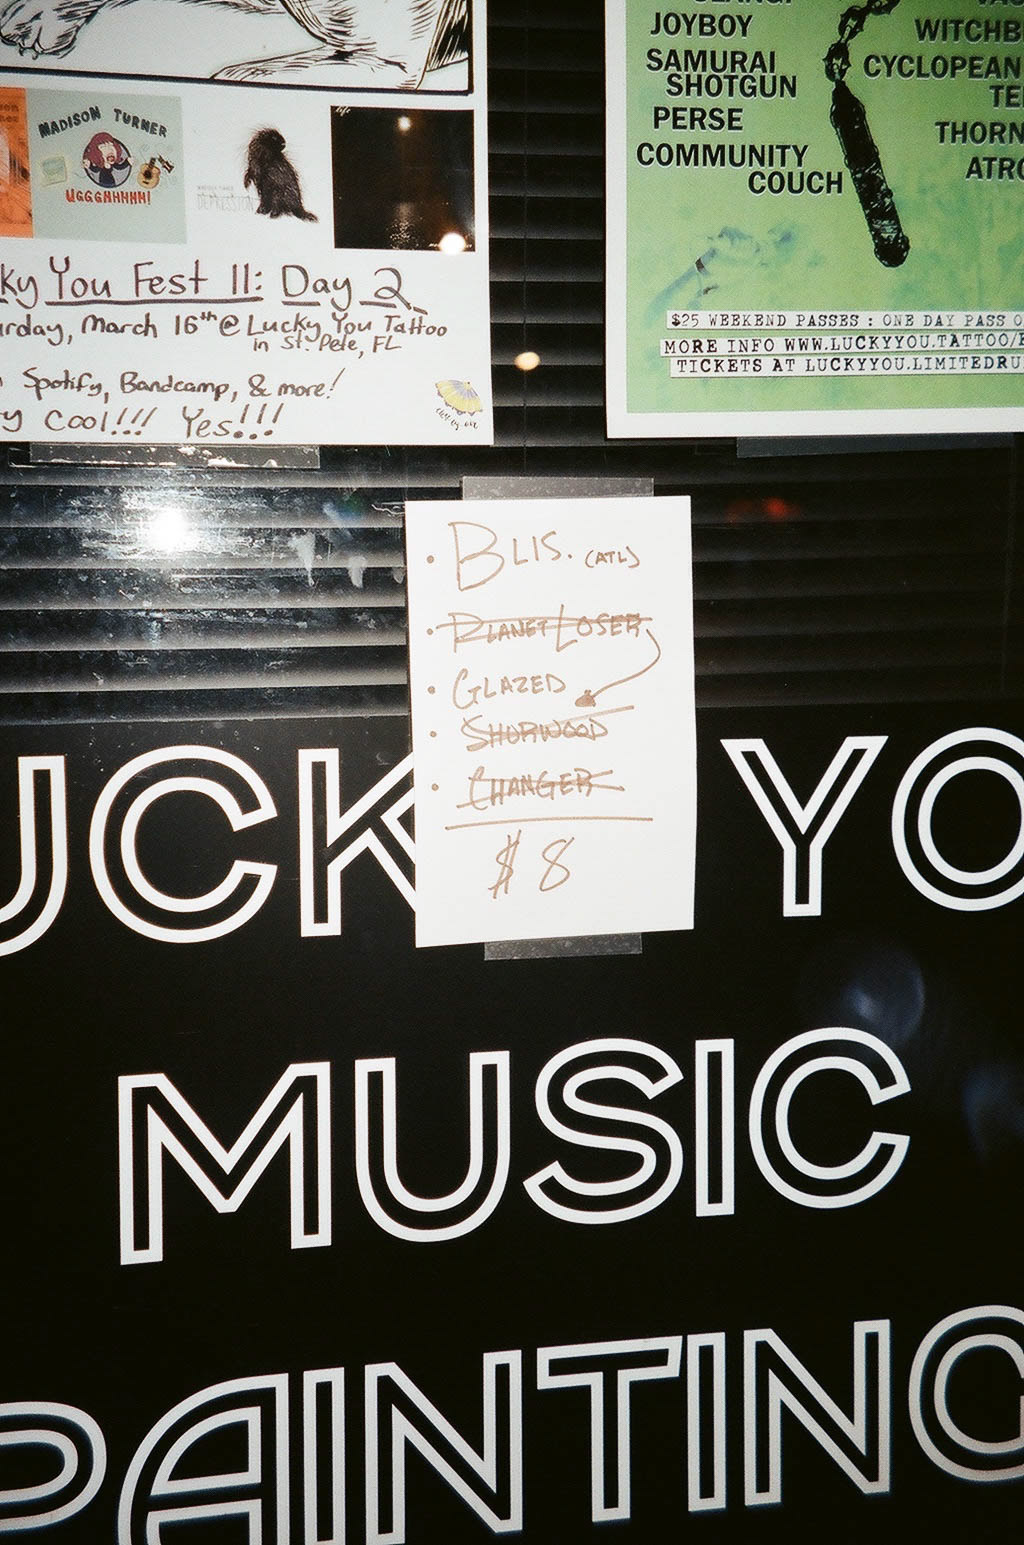 MADISON TURNER
UGGGHHHHH!
DEPRESSION
ky You Fest 11: Day 2
urday, March 16th @ Lucky You Tattoo
in St. Pete, FL
Spotify, Bandcamp, & more!
Cool!!! Yes!!!
JOYBOY
SAMURAI
SHOTGUN
PERSE
COMMUNITY
COUCH
WITCHB
CYCLOPEAN
TE
THORN
ATRO
$25 WEEKEND PASSES : ONE DAY PASS
MORE INFO WWW.LUCKYYOU.TATTOO/
TICKETS AT LUCKYYOU.LIMITEDRU
• BLIS. (ATL)
• PLANET LOSER
• GLAZED
• SHURWOOD
• CHANGER
$8
UCK YO
MUSIC
PAINTING